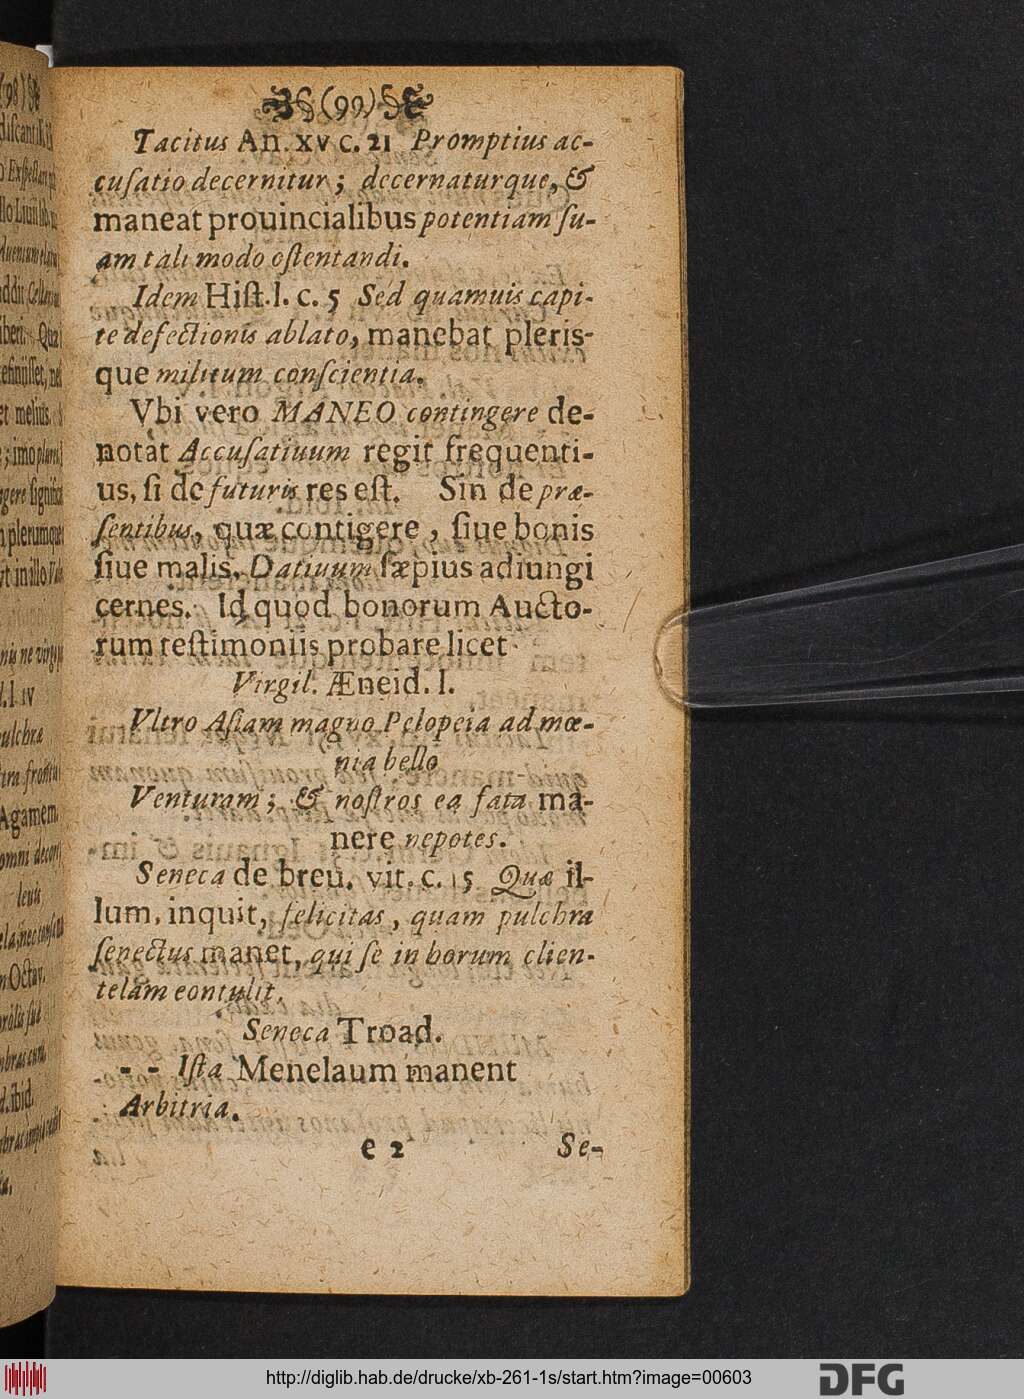 (99)
Tacitus An. xv c. 21 Promptius ac-
cuſatio decernitur; decernaturque, &
maneat prouincialibus potentiam ſu-
am tali modo oſtentandi.
Idem Hiſt. l. c. 5 Sed quamuis capi-
te defectionis ablato, manebat pleris-
que militum conſcientia.
Vbi vero MANEO contingere de-
notat Accuſatiuum regit frequenti-
us, ſi de futuris res eſt. Sin de præ-
ſentibus, quæ contigere, ſiue bonis
ſiue malis. Datiuum ſæpius adiungi
cernes. Id quod bonorum Aucto-
rum teſtimoniis probare licet
Virgil. Æneid. I.
Vltro Aſiam magno Pelopeia ad mœ-
nia bello
Venturam; & noſtros ea fata ma-
nere nepotes.
Seneca de breu. vit. c. 15 Quæ il-
lum, inquit, felicitas, quam pulchra
ſenectus manet, qui ſe in horum clien-
telam eontulit.
Seneca Troad.
- - Iſta Menelaum manent
Arbitria.
e 2 Se-
http://diglib.hab.de/drucke/xb-261-1s/start.htm?image=00603
DFG